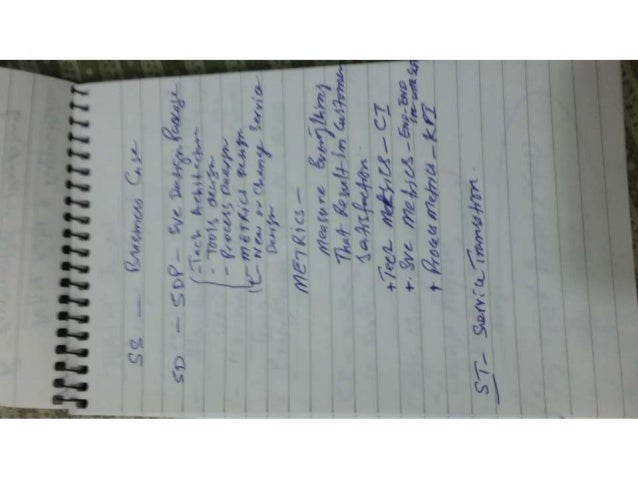 SS — Business Case
SD — SDP — Svc Design Package
- Tech Architecture
- Tools design
- Process Design
- METRICS design
- New or Change Service
Design
METRICS —
Measure Everything
That Result in Customer
Satisfaction.
+ Tech Metrics - CI
+ Svc Metrics - End-End
+ Process Metrics - KPI
ST - Service Transition.